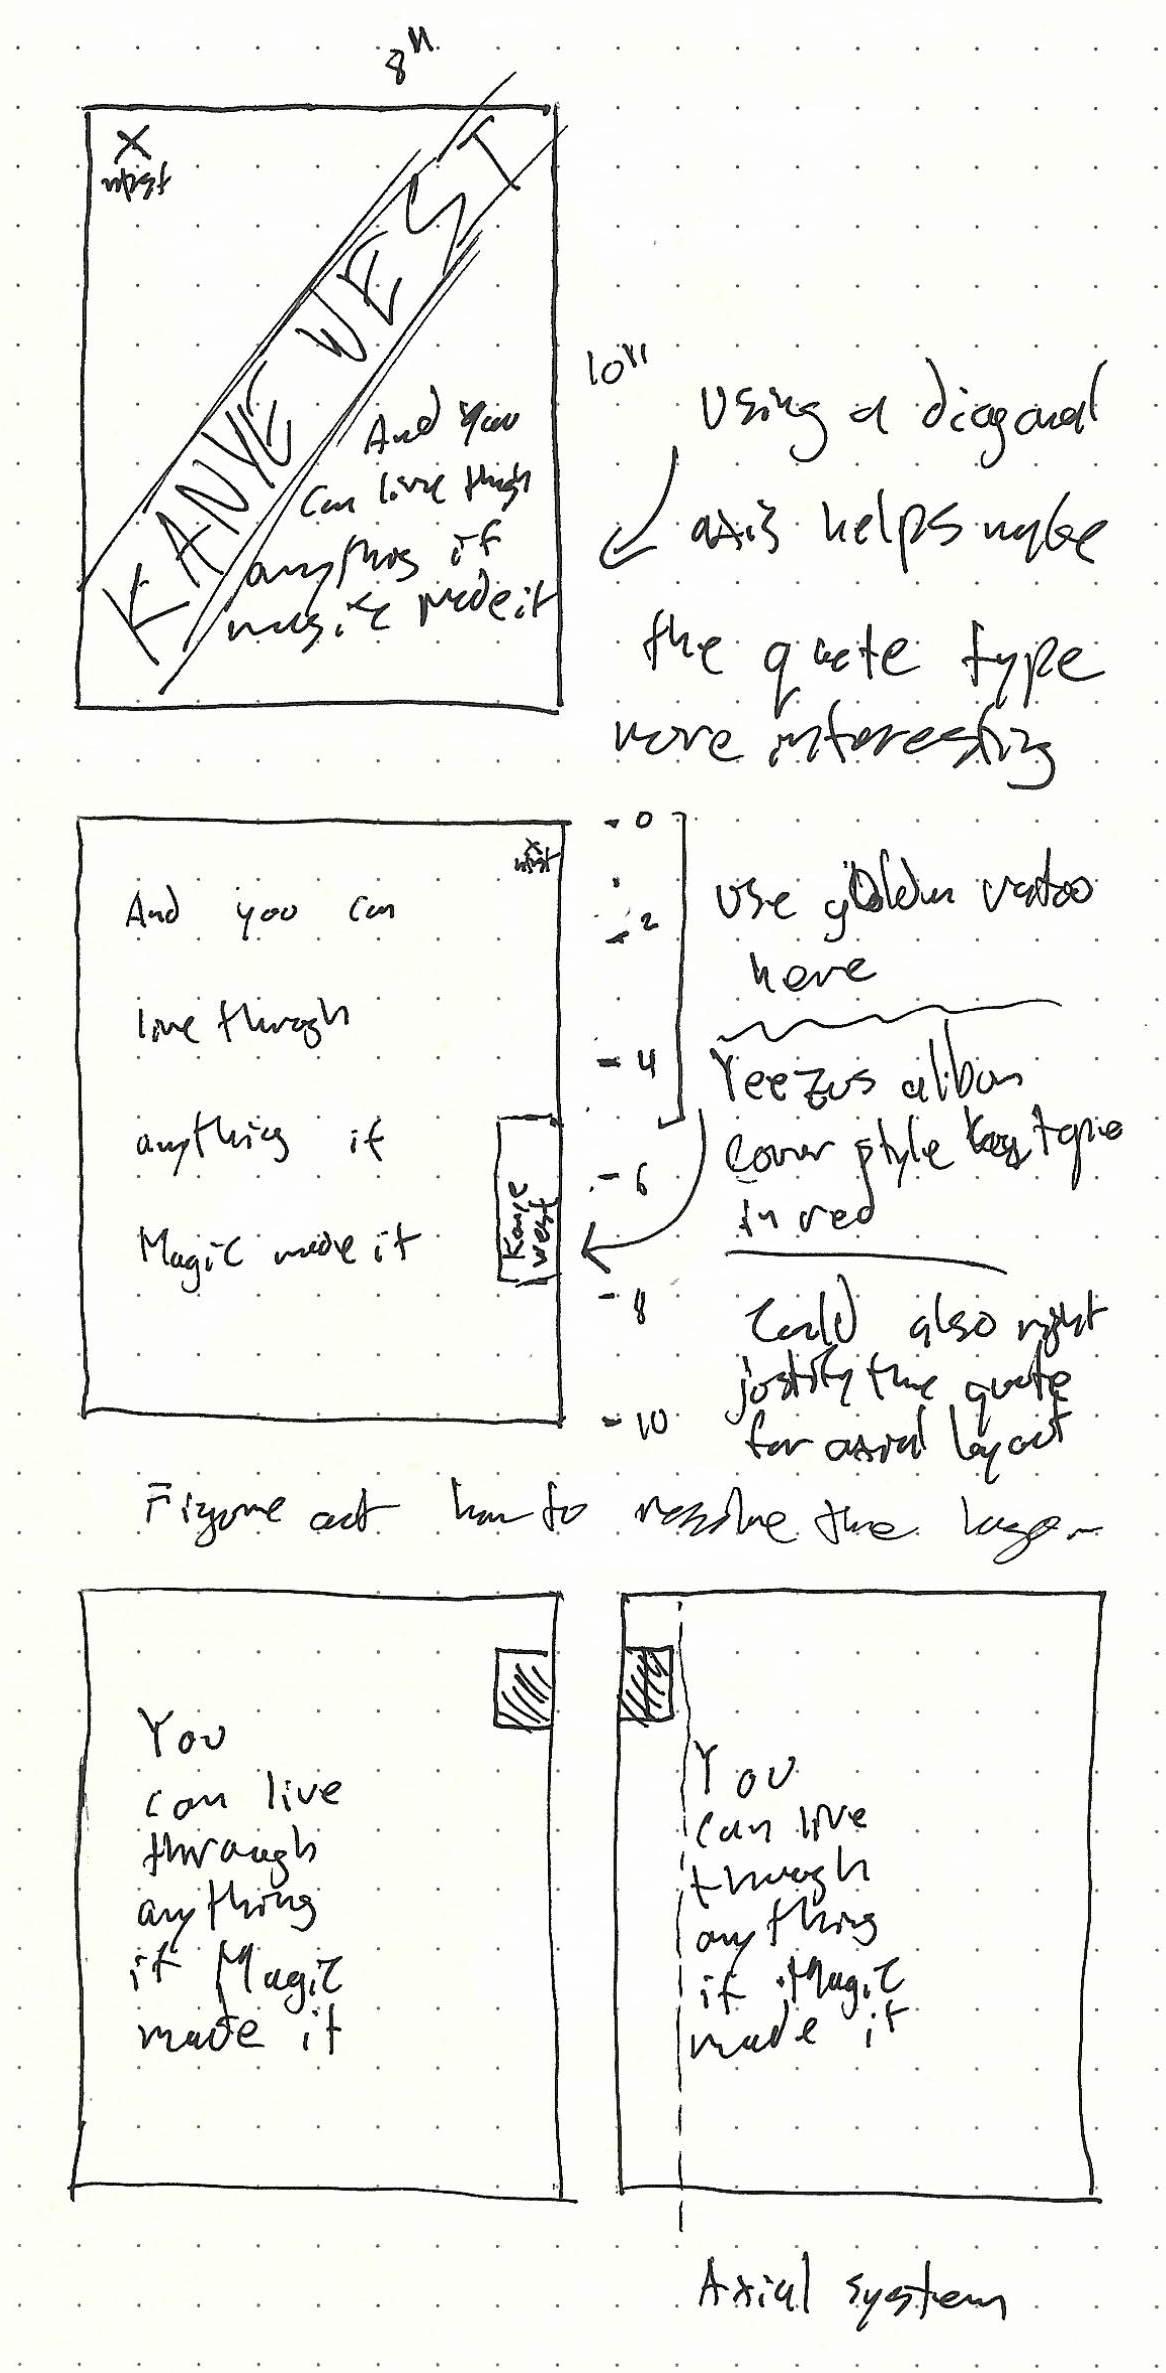 8"
X
KANYE WEST
And you
can live through
anything if
made it
10"
Using a diagonal
axis helps make
the quote type
more interesting
X
And you can
live through
anything if
Magic made it
Kanye
west
- 0
- 2
- 4
- 6
- 8
- 10
Use golden
here
Yeezus
cover style
in red
Could also right
justify the quote
for axial layout
Figure out how to resolve the
You
can live
through
anything
if Magic
made it
You
can live
through
anything
if Magic
made it
Axial system